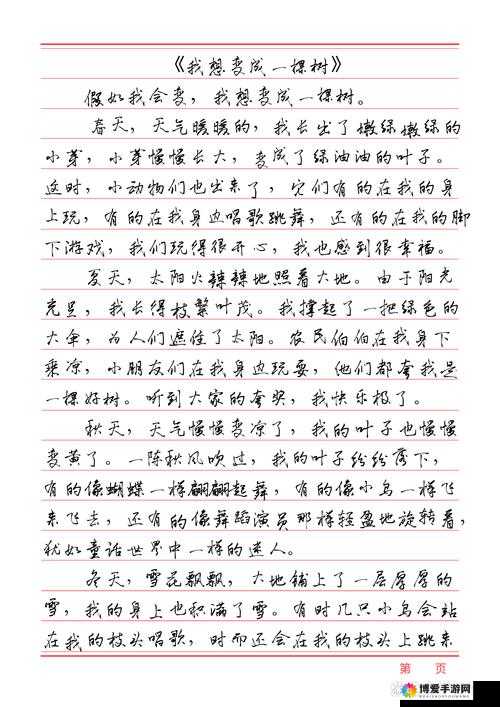 《我想变成一棵树》
假如我会变，我想变成一棵树。
春天，天气暖暖的，我长出了嫩绿嫩绿的
小芽，小芽慢慢长大，变成了绿油油的叶子。
这时，小动物们也出来了，它们有的在我的身
上玩，有的在我身边唱歌跳舞，还有的在我的脚
下游戏，我们玩得很开心，我也感到很幸福。
夏天，太阳火辣辣地照着大地。由于阳光
充足，我长得枝繁叶茂。我撑起了一把绿色的
大伞，为人们遮住了太阳。农民伯伯在我身下
乘凉，小朋友们在我身边玩耍，他们都夸我是
一棵好树。听到大家的夸奖，我快乐极了。
秋天，天气慢慢变凉了，我的叶子也慢慢
变黄了。一阵秋风吹过，我的叶子纷纷落下，
有的像蝴蝶一样翩翩起舞，有的像小鸟一样飞
来飞去，还有的像舞蹈演员那样轻盈地旋转着，
犹如童话世界中一样的迷人。
冬天，雪花飘飘，大地铺上了一层厚厚的
雪，我的身上也积满了雪。有时几只小鸟会站
在我的枝头唱歌，时而还会在我的枝头上跳来
第 页
博爱手游网